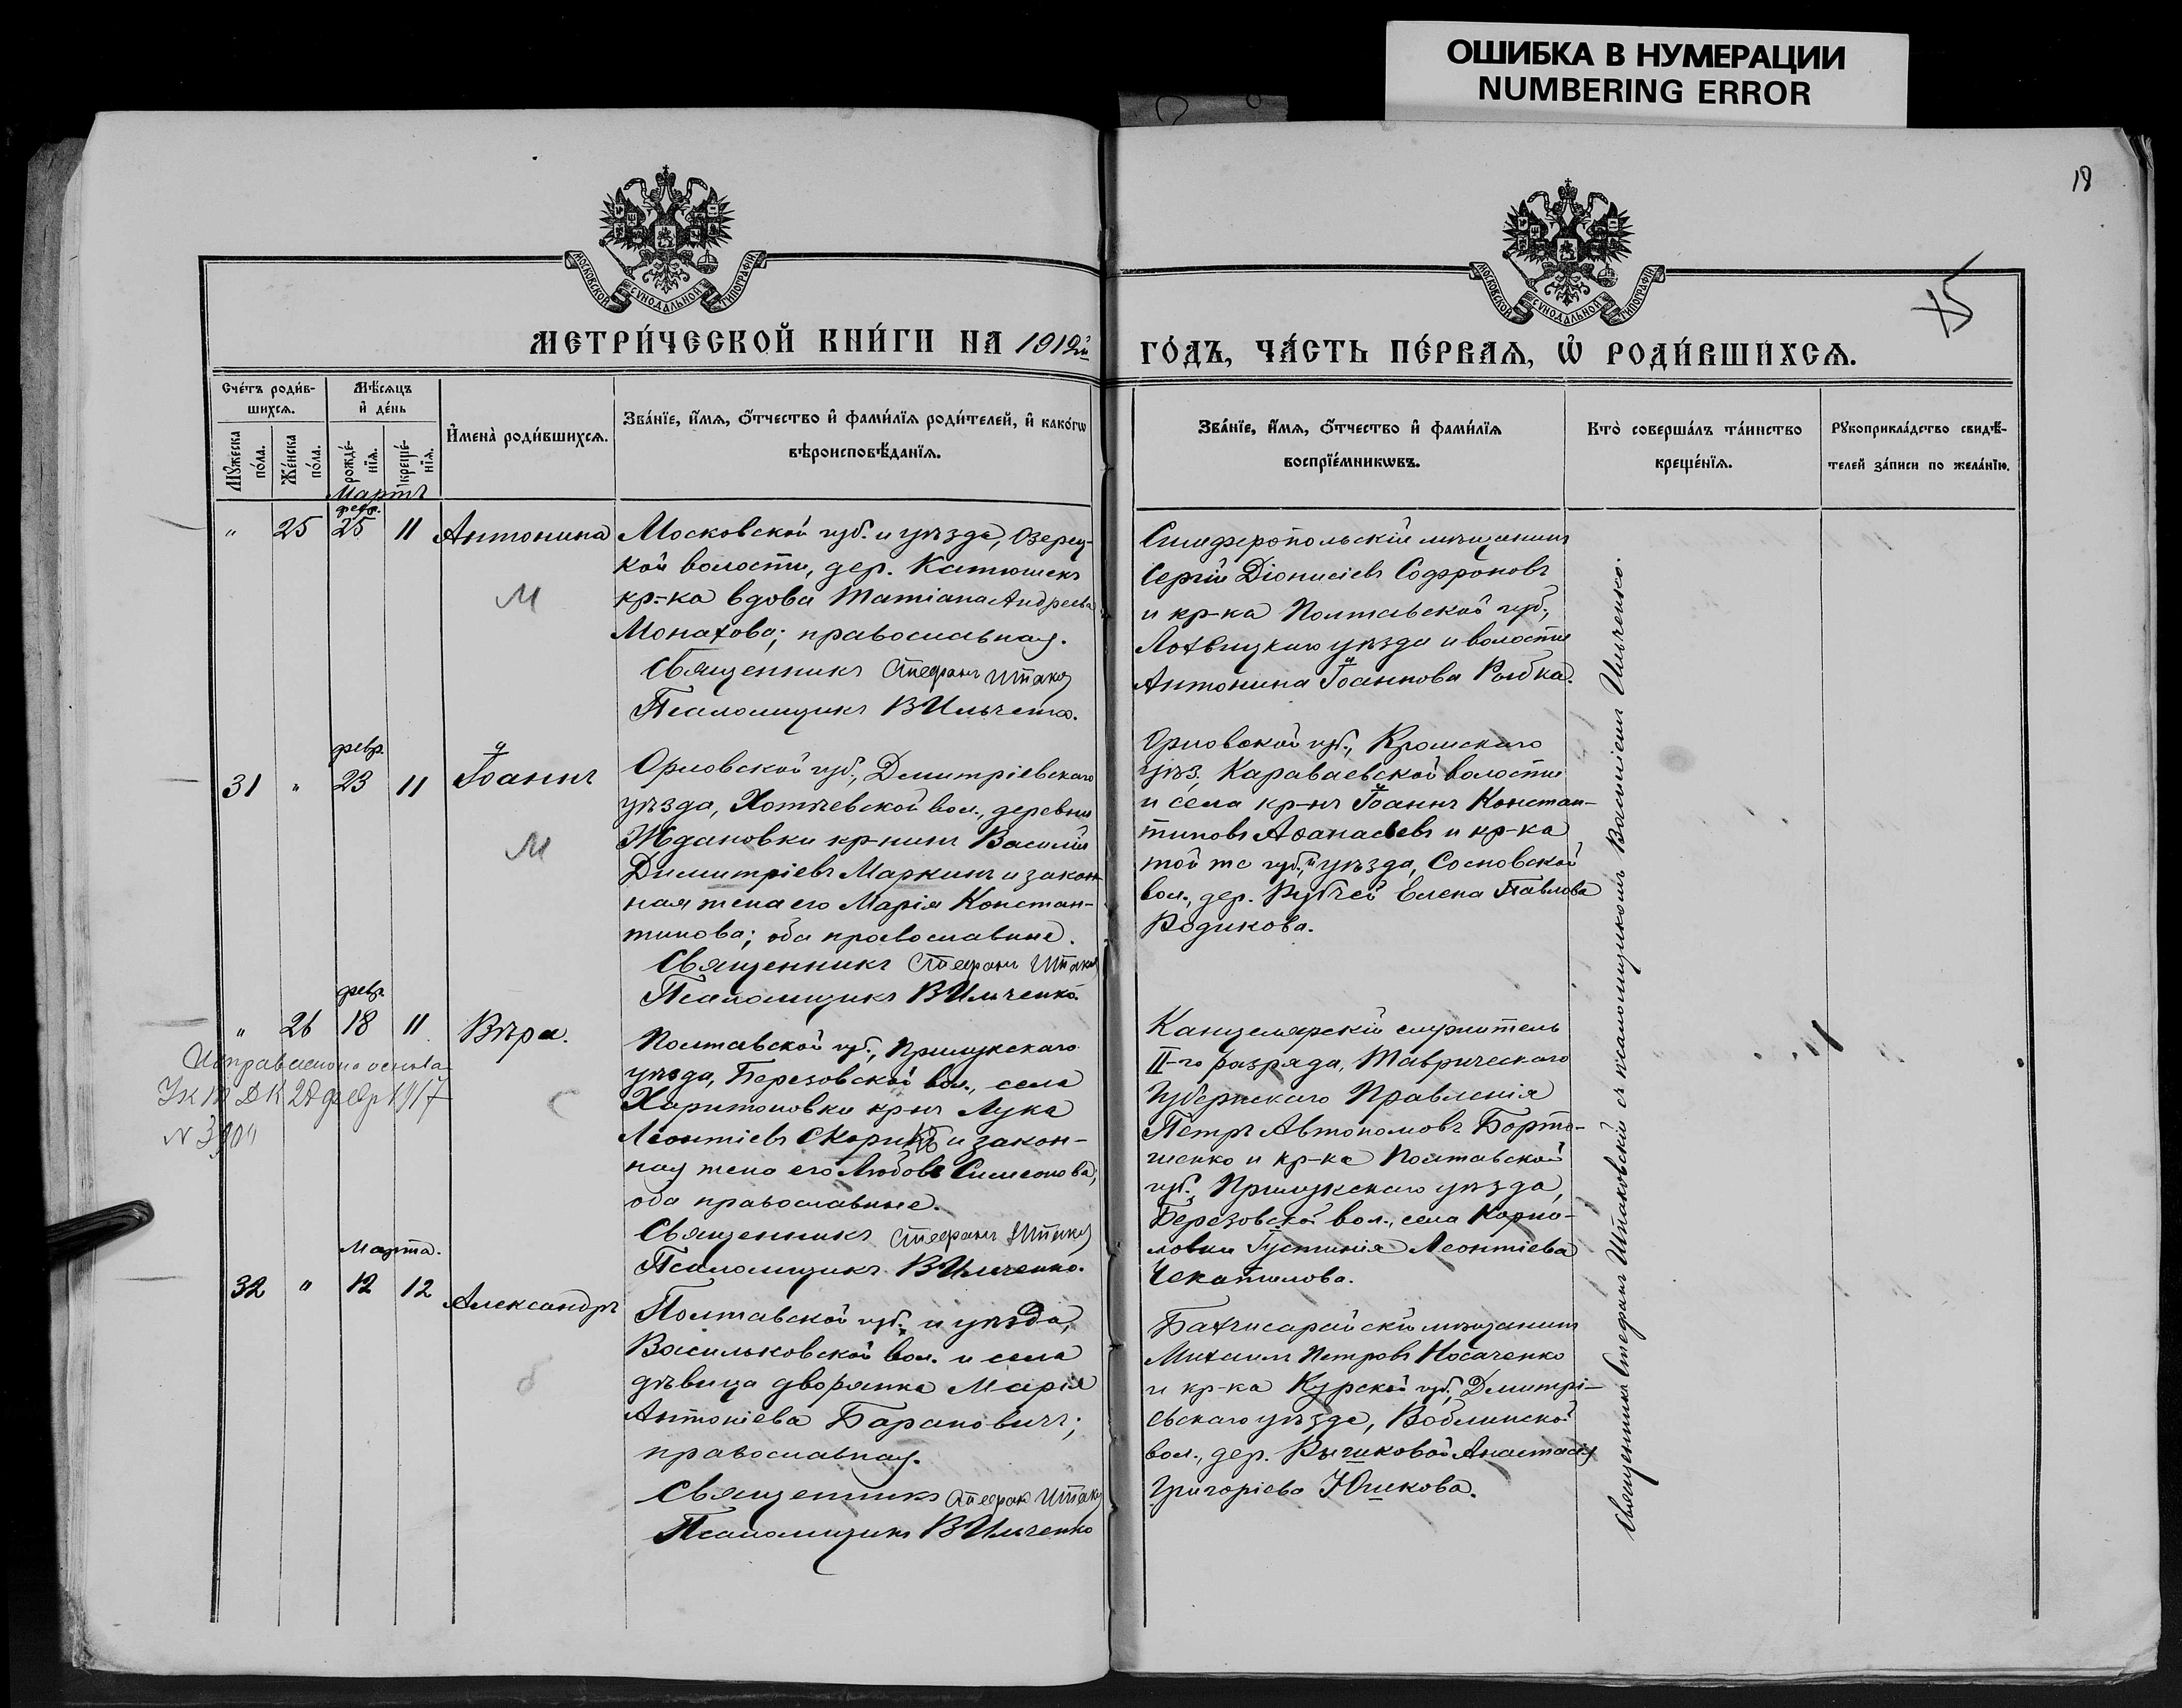 ОШИБКА В НУМЕРАЦИИ
NUMBERING ERROR
18
МОСКОВСКОЙ СѴНОДАЛЬНОЙ ТИПОГРАФІИ
МОСКОВСКОЙ СѴНОДАЛЬНОЙ ТИПОГРАФІИ
МЕТРИ́ЧЕСКОЙ КНИ́ГИ НА 1912й
ГО́ДЪ, ЧА́СТЬ ПЕ́РВАЯ, Ѡ҆ РОДИ́ВШИХСЯ.
Сче́тъ роди́в-
шихся.
Мѣ́сяцъ
и҆ де́нь
Мꙋ́жеска
по́ла.
Же́нска
по́ла.
рожде́-
нїя.
креще́-
нїя.
И҆мена̀ роди́вшихся.
Зва́нїе, и҆́мя, ѻ҆́тчество и҆ фами́лїя роди́телей, и҆ како́гѡ
вѣроисповѣ́данїя.
Зва́нїе, и҆́мя, ѻ҆́тчество и҆ фами́лїя
воспрїе́мникѡвъ.
Кто̀ соверша́лъ та́инство
креще́нїя.
Рꙋкоприкла́дство свидѣ́-
телей за́писи по жела́нїю.
Мартъ
февр.
" 25 25 11 Антонина
Московской губ. и уѣзда, Озерец-
кой волости, дер. Катюшекъ
кр-ка вдова Татіана Андреева
Монахова; православная.
Священникъ Стефанъ Штак
Псаломщикъ В Ильченко.
М
Симферопольскій мѣщанинъ
Сергій Діонисіевъ Софроновъ
и кр-ка Полтавской губ.,
Лохвицкаго уѣзда и волости
Антонина Іоаннова Рыбка.
февр.
31 " 23 11 Іоаннъ
Орловской губ., Дмитріевскаго
уѣзда, Хотѣевской вол., деревни
Ждановки кр-нинъ Василій
Димитріевъ Маркинъ и закон-
ная жена его Марія Констан-
тинова; оба православные.
Священникъ Стефанъ Штак
Псаломщикъ В Ильченко.
М
Орловской губ., Кромскаго
уѣз., Караваевской волости
и села кр-нъ Іоаннъ Констан-
тиновъ Аѳанасьевъ и кр-ка
той же губ. и уѣзда, Сосновской
вол., дер. Елена Павлова
Родикова.
февр.
" 26 18 11 Вѣра.
Исправлено на основа
Ук Т Д К 28 февр 1917
N 3901
Полтавской губ., Прилукскаго
уѣзда, Березовской вол., села
Харитоновки кр-нъ Лука
Леонтіевъ и закон-
ная жена его Любовь Симеонова,
оба православные.
Священникъ Стефанъ Штак
Псаломщикъ В Ильченко.
С
Канцелярскій служитель
II-го разряда, Таврическаго
Губернскаго Правленія
Петръ Автономовъ Борто-
шенко и кр-ка Полтавской
губ., Прилукскаго уѣзда,
Березовской вол., села Карпо-
ловки Іустинія Леонтіева
Чекатилова.
Марта.
32 " 12 12 Александръ
Полтавской губ. и уѣзда,
Васильковской вол. и села
дѣвица дворянка Марія
Антоніева Барановичъ;
православная.
Священникъ Стефанъ Штак
Псаломщикъ В Ильченко
б
Бахчисарайскій мѣщанинъ
Михаилъ Петровъ Носаченко
и кр-ка Курской губ., Дмитрі-
евскаго уѣзда, Воблинской
вол., дер. Рышковой Анастасія
Григоріева Юшкова.
Священникъ Стефанъ Штаковскій съ псаломщикомъ Василіемъ Ильченко.